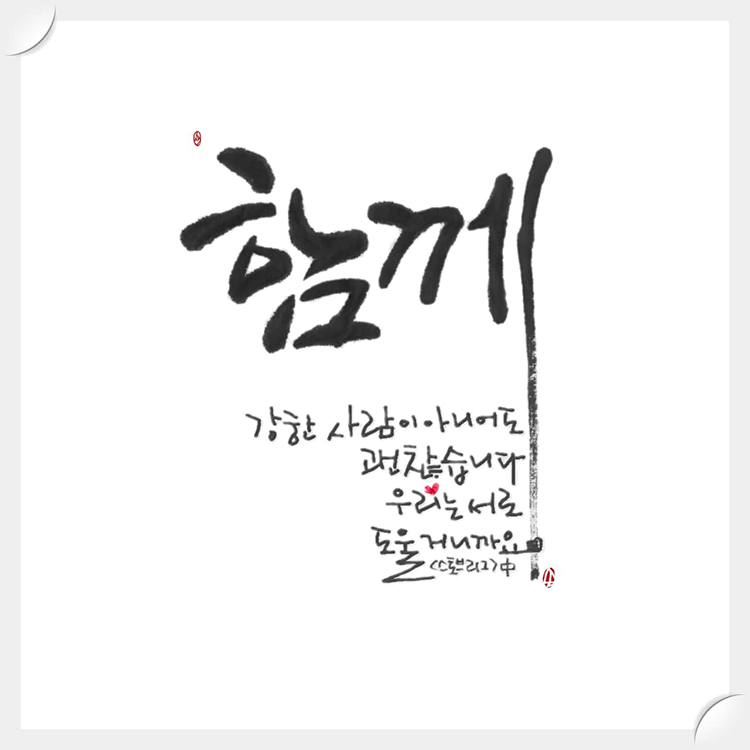 함께
강한 사람이 아니어도
괜찮습니다
우리는 서로
도울 거니까요
<스토브리그> 中